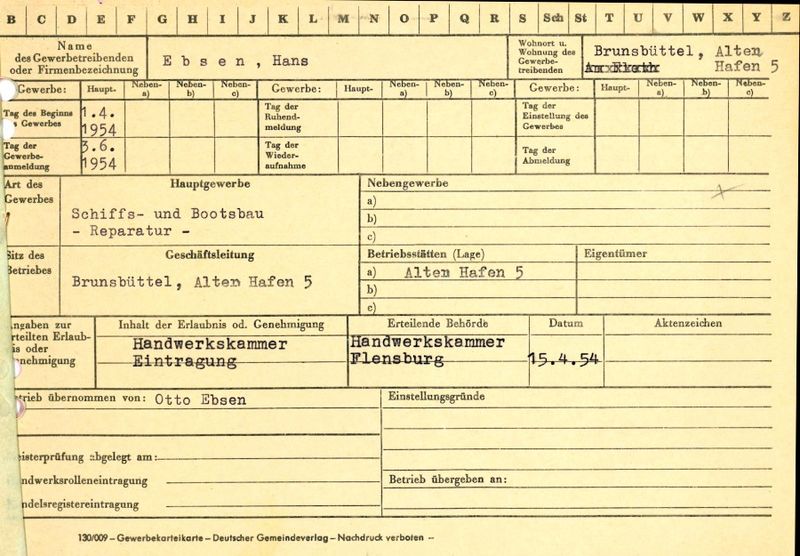 B C D E F G H I J K L M N O P Q R S Sch St T U V W X Y Z
Name
des Gewerbetreibenden
oder Firmenbezeichnung
Ebsen, Hans
Wohnort u.
Wohnung des
Gewerbe-
treibenden
Brunsbüttel, Alten
Hafen 5
Gewerbe: Haupt- Neben- a) Neben- b) Neben- c) Gewerbe: Haupt- Neben- a) Neben- b) Neben- c) Gewerbe: Haupt- Neben- a) Neben- b) Neben- c)
Tag des Beginns
s Gewerbes
1.4.
1954
Tag der
Ruhend-
meldung
Tag der
Einstellung des
Gewerbes
Tag der
Gewerbe-
anmeldung
3.6.
1954
Tag der
Wieder-
aufnahme
Tag der
Abmeldung
Art des
Gewerbes
Hauptgewerbe
Schiffs- und Bootsbau
- Reparatur -
Nebengewerbe
a)
b)
c)
Sitz des
Betriebes
Geschäftsleitung
Brunsbüttel, Alten Hafen 5
Betriebsstätten (Lage)
a) Alten Hafen 5
b)
c)
Eigentümer
ngaben zur
rteilten Erlaub-
is oder
enehmigung
Inhalt der Erlaubnis od. Genehmigung
Handwerkskammer
Eintragung
Erteilende Behörde
Handwerkskammer
Flensburg
Datum
15.4.54
Aktenzeichen
trieb übernommen von: Otto Ebsen
Einstellungsgründe
eisterprüfung abgelegt am:
ndwerksrolleneintragung
ndelsregistereintragung
Betrieb übergeben an:
130/009 – Gewerbekarteikarte – Deutscher Gemeindeverlag – Nachdruck verboten –